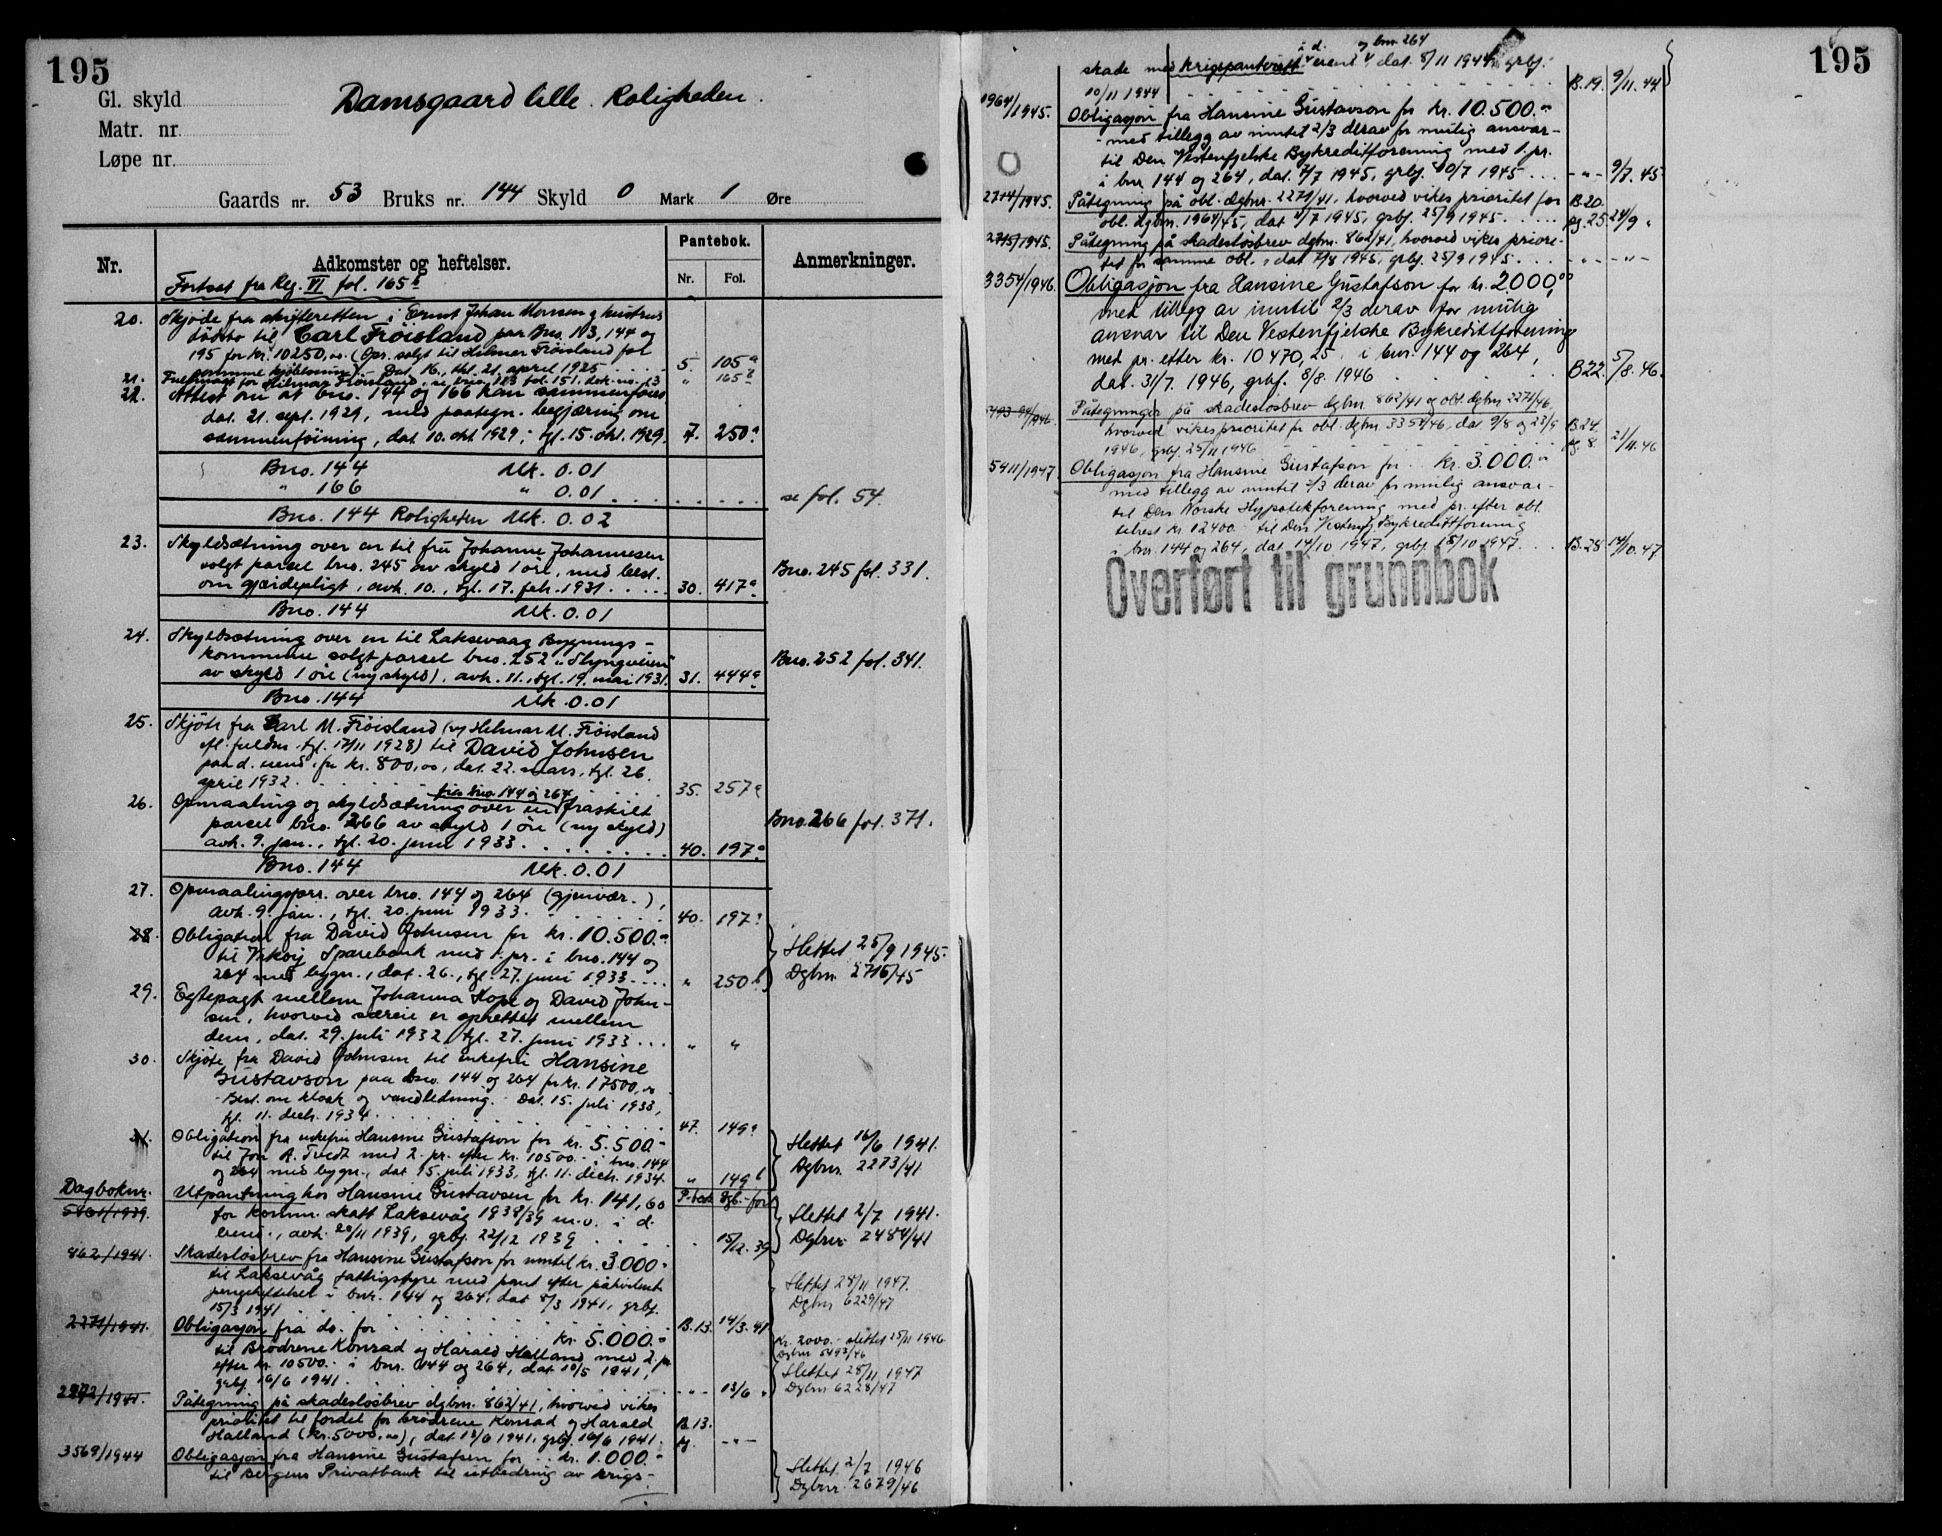 195
Gl. skyld
Matr. nr.
Løpe nr.
Damsgaard lille. Roligheden.
Gaards nr. 53 Bruks nr. 144 Skyld 0 Mark 1 Øre
Nr. Adkomster og heftelser. Pantebok. Nr. Fol. Anmerkninger.
Fortsat fra Reg. VI fol. 165
20. Skjøde fra skifteretten i Ernst Johan Monsen og hustrus
dødsbo til Carl Frøisland paa Bno. 113, 144 og
195 for kr. 10250,00. (Opr. solgt til Helmer Frøisland for
samme kjøbesum). Dat. 16., thl. 21. april 1925 5. 105a
21. Fuldmagt for Hilmar Frøisland, se bno. 113 fol. 151, dok. no. 23 " 165
22. Attest om at bno. 144 og 166 kan sammenføies
dat. 21. sept. 1929, med paategn. begjæring om
sammenføining, dat. 10. okt. 1929, tgl. 15. okt. 1929. 7. 250a
Bno. 144 Mk. 0.01
" 166 " 0.01 se fol. 54.
Bno. 144 Roligheden Mk. 0.02
23. Skyldsætning over en til fru Johanne Johannesen
solgt parsel bno. 245 av skyld 1 øre, med best.
om gjærdepligt, avh. 10., tgl. 17. feb. 1931. 30. 417a Bno. 245 fol. 331.
Bno. 144 Mk. 0.01
24. Skyldsætning over en til Laksevaag Bygnings-
kommune solgt parsel bno. 252 "Slyngveien"
av skyld 1 øre (ny skyld), avh. 11., tgl. 19. mai 1931. 31. 444a Bno. 252 fol. 341.
Bno. 144 Mk. 0.01
25. Skjøte fra Carl M. Frøisland (v/ Helmar M. Frøisland
efl. fuldm. tgl. 17/11 1928) til David Johnsen
paa d. eiend. for kr. 800,00, dat. 22. mars, tgl. 26.
april 1932. 35. 257a
fra bno. 144 og 264
26. Opmaaling og skyldsætning over en fraskilt
parsel bno. 266 av skyld 1 øre (ny skyld)
avh. 9. jan., tgl. 20. juni 1933. 40. 197a Bno. 266 fol. 371.
Bno. 144 Mk. 0.01
27. Opmaalingsforr. over bno. 144 og 264 (gjenvær.),
avh. 9. jan., tgl. 20. juni 1933. 40. 197a
28. Obligation fra David Johnsen for kr. 10.500.-
til Sparebank med 1. pr. i bno. 144 og
264 med bygn., dat. 26., tgl. 27. juni 1933. " 250b Slettet 25/9 1945. Dgbnr. 2716/45
29. Egtepagt mellem Johanna Kope og David John-
sen, hvorved særeie er oprettet mellem
dem, dat. 29. juli 1932, tgl. 27. juni 1933. " "
30. Skjøte fra David Johnsen til enkefru Hansine
Gustavson paa bno. 144 og 264 for kr. 17500,00
Best. om kloak og vandledning. Dat. 15. juli 1933,
tgl. 11. decb. 1934. 47. 149a
31. Obligation fra enkefru Hansine Gustafson for kr. 5.500.-
til Jon A. Tvedt med 2. pr. efter kr. 10500.- i bno. 144
og 264 med bygn., dat. 15. juli 1933, tgl. 11. decb. 1934. " 149b Slettet 16/6 1941. Dgbnr. 2273/41
Dagboknr. P.bok Dgb.-for
5861/1939. Utpantning hos Hansine Gustavsen for kr. 141,60
for komm. skatt Laksevåg 1938/39 m.v. i d.
eiend., avh. 20/11 1939, grbf. 22/12 1939 15/12.39 Slettet 2/7 1941. Dgbnr. 2484/41
862/1941. Skadesløsbrev fra Hansine Gustafson for inntil kr. 3.000.-
til Laksevåg Fattigstyre med pant efter påhvilende
pengeheftelser i bnr. 144 og 264, dat. 8/3 1941, grbf.
15/3 1941 B.13. 14/3.41 Slettet 28/11 1947. Dgbnr 6229/47
2271/1941. Obligasjon fra do. for kr. 5.000.-
til Brødrene Konrad og Harald Halland med 2. pr.
efter kr. 10500.- i bnr. 144 og 264, dat. 10/5 1941,
grbf. 16/6 1941. -"- 13/6 " Kr. 2000.- slettet 25/11 1946. Dgbnr 5493/46
Slettet 28/11 1947 Dgbnr 6228/47
2272/1941. Påtegning på skadesløsbrev dgbnr. 862/41, hvorved vikes
prioritet til fordel for brødrene Konrad og Harald
Halland (kr. 5000,00), dat. 12/6 1941, grbf. 16/6 1941. B.13. pg. -"-
3569/1944 Obligasjon fra Hansine Gustafsen for kr. 1.000.-
til Bergens Privatbank til utbedring av krigs- Slettet 2/7 1946 Dgbnr. 2679/46
195
i d. og bnr 264
skade med krigspanterett eiend., dat. 8/11 1944, grbf.
10/11 1944 B.19. 9/11.44
1964/1945. Obligasjon fra Hansine Gustavson for kr. 10.500.-
med tillegg av inntil 2/3 derav for mulig ansvar-
til Den Vestenfjelske Bykreditforening med 1. pr.
i bnr 144 og 264, dat. 7/7 1945, grbf. 10/7 1945. -"- 9/7.45
2714/1945. Påtegning på obl. dgbnr. 2271/41, hvorved vikes prioritet for
obl. dgbnr. 1964/45, dat. 4/7 1945, grbf. 25/9 1945. B.20. pg. 25. 24/9 "
2715/1945. Påtegning på skadesløsbrev dgbnr. 862/41, hvorved vikes priori-
tet for samme obl., dat. 7/8 1945, grbf. 25/9 1945. -"- -"-
3354/1946. Obligasjon fra Hansine Gustafson for kr. 2000,00
med tillegg av inntil 2/3 derav for mulig
ansvar til Den Vestenfjelske Bykredittforening
med pr. etter kr. 10470,25 i bnr. 144 og 264,
dat. 31/7. 1946, grbf. 8/8. 1946 B22. 5/8.46.
5493-94/1946. Påtegninger på skadesløsbrev dgbnr. 862/41 og obl. dgbnr 2271/46,
hvorved vikes prioritet for obl. dgbnr. 3354/46, dat. 9/8 og 23/9
1946, grbf. 25/11 1946 B.24. pg. 8. 21/11.46
5411/1947. Obligasjon fra Hansine Gustafson for kr. 3.000.-
med tillegg av inntil 2/3 derav for mulig ansvar-
til Den Norske Hypotekforening med pr. efter obl.
tilrest kr. 12400.- til Den Vestenfj. Bykredittforening
i bnr. 144 og 264, dat. 14/10 1947, grbf. 15/10 1947. B.28 14/10.47
Overført til grunnbok